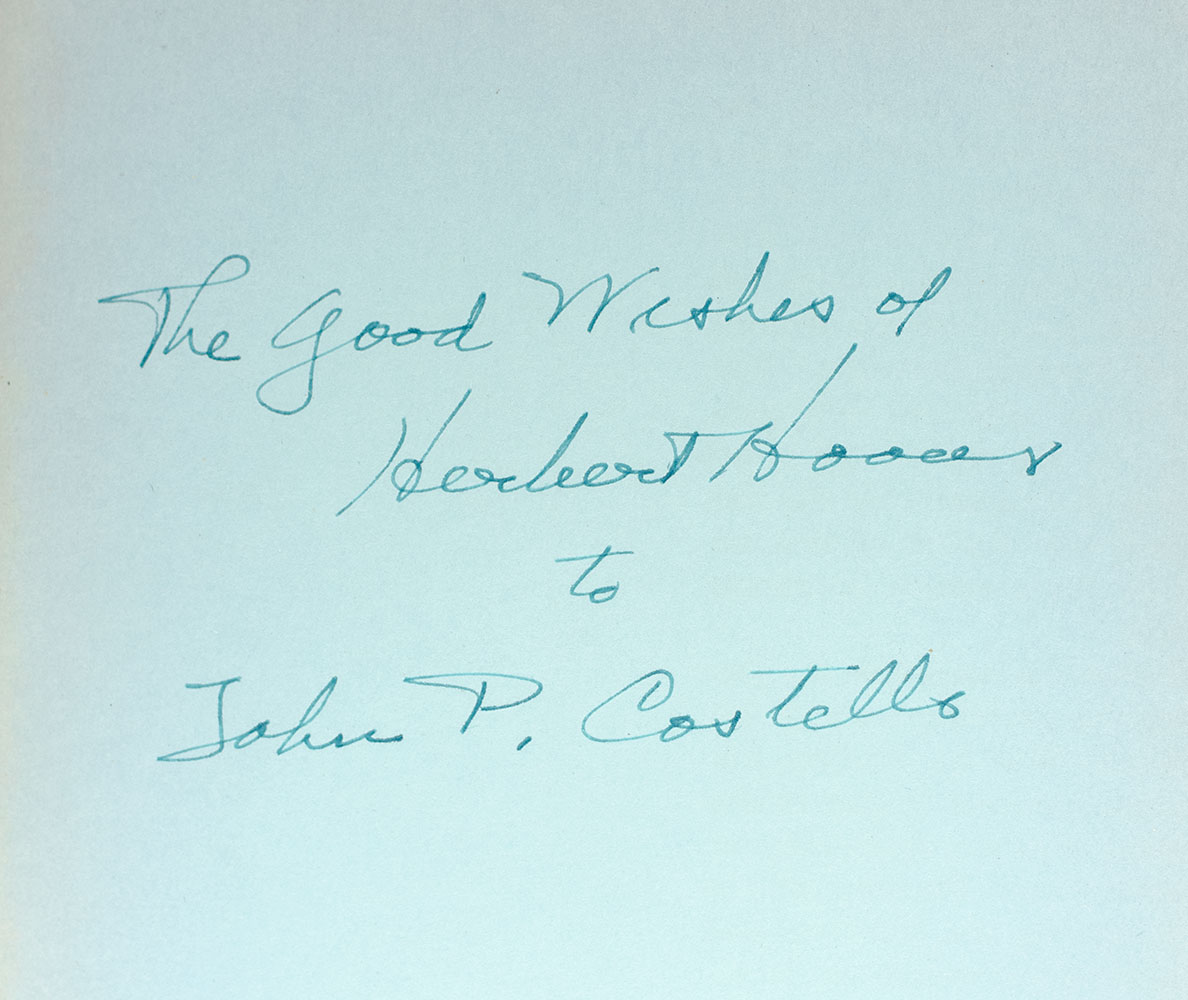 The Good Wishes of
Herbert Hoover
to
John P. Costello